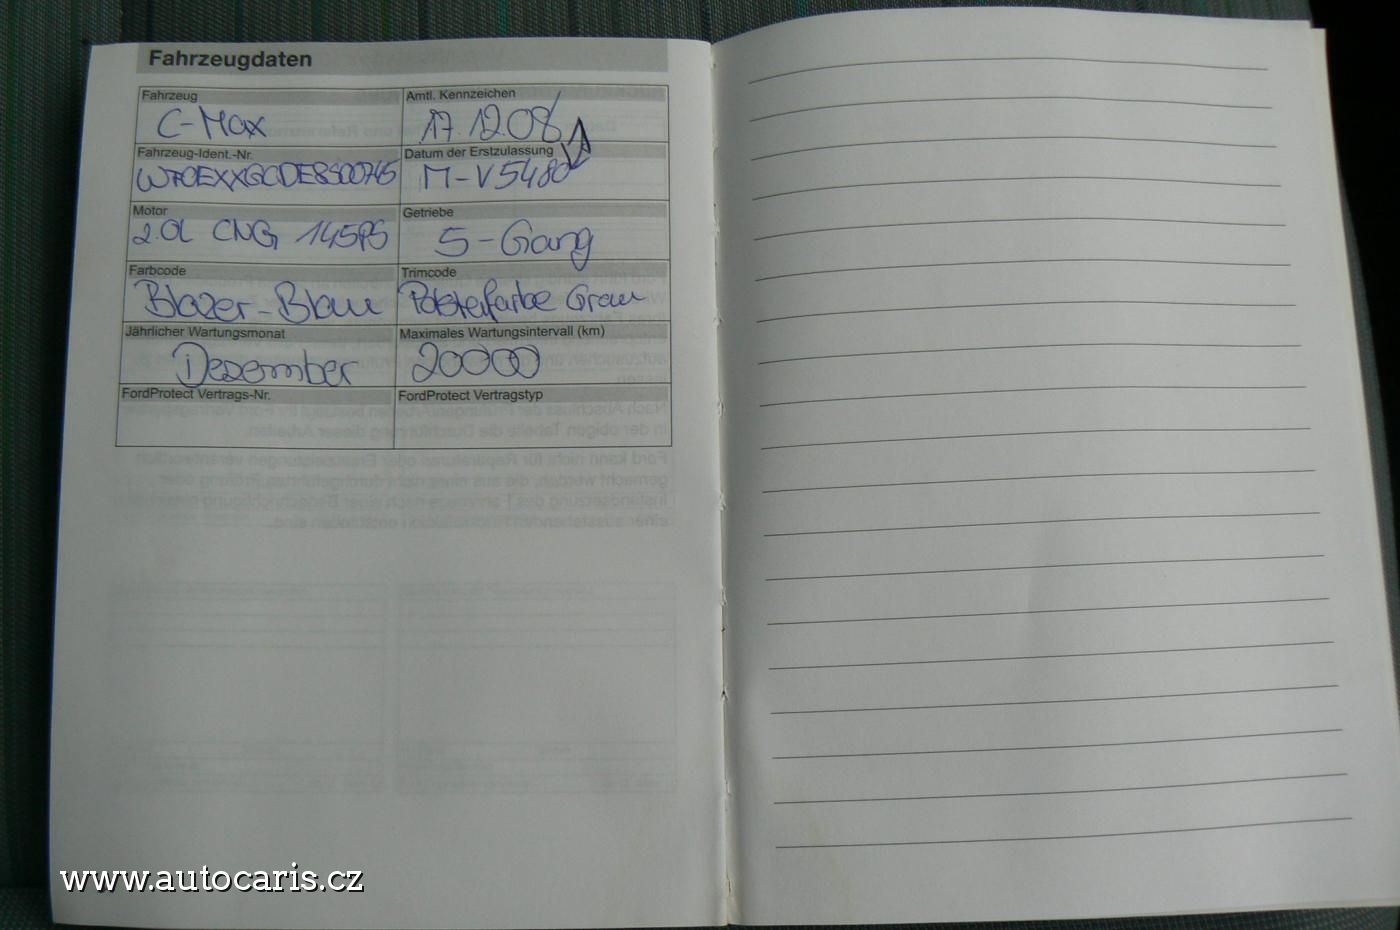 Fahrzeugdaten
Fahrzeug
C-Max
Amtl. Kennzeichen
17.12.08
Fahrzeug-Ident.-Nr.
Datum der Erstzulassung
M-V5480
Motor
2.0L CNG 145PS
Getriebe
5-Gang
Farbcode
Blazer-Blau
Trimcode
Polsterfarbe Grau
Jährlicher Wartungsmonat
Dezember
Maximales Wartungsintervall (km)
20000
FordProtect Vertrags-Nr.
FordProtect Vertragstyp
www.autocaris.cz